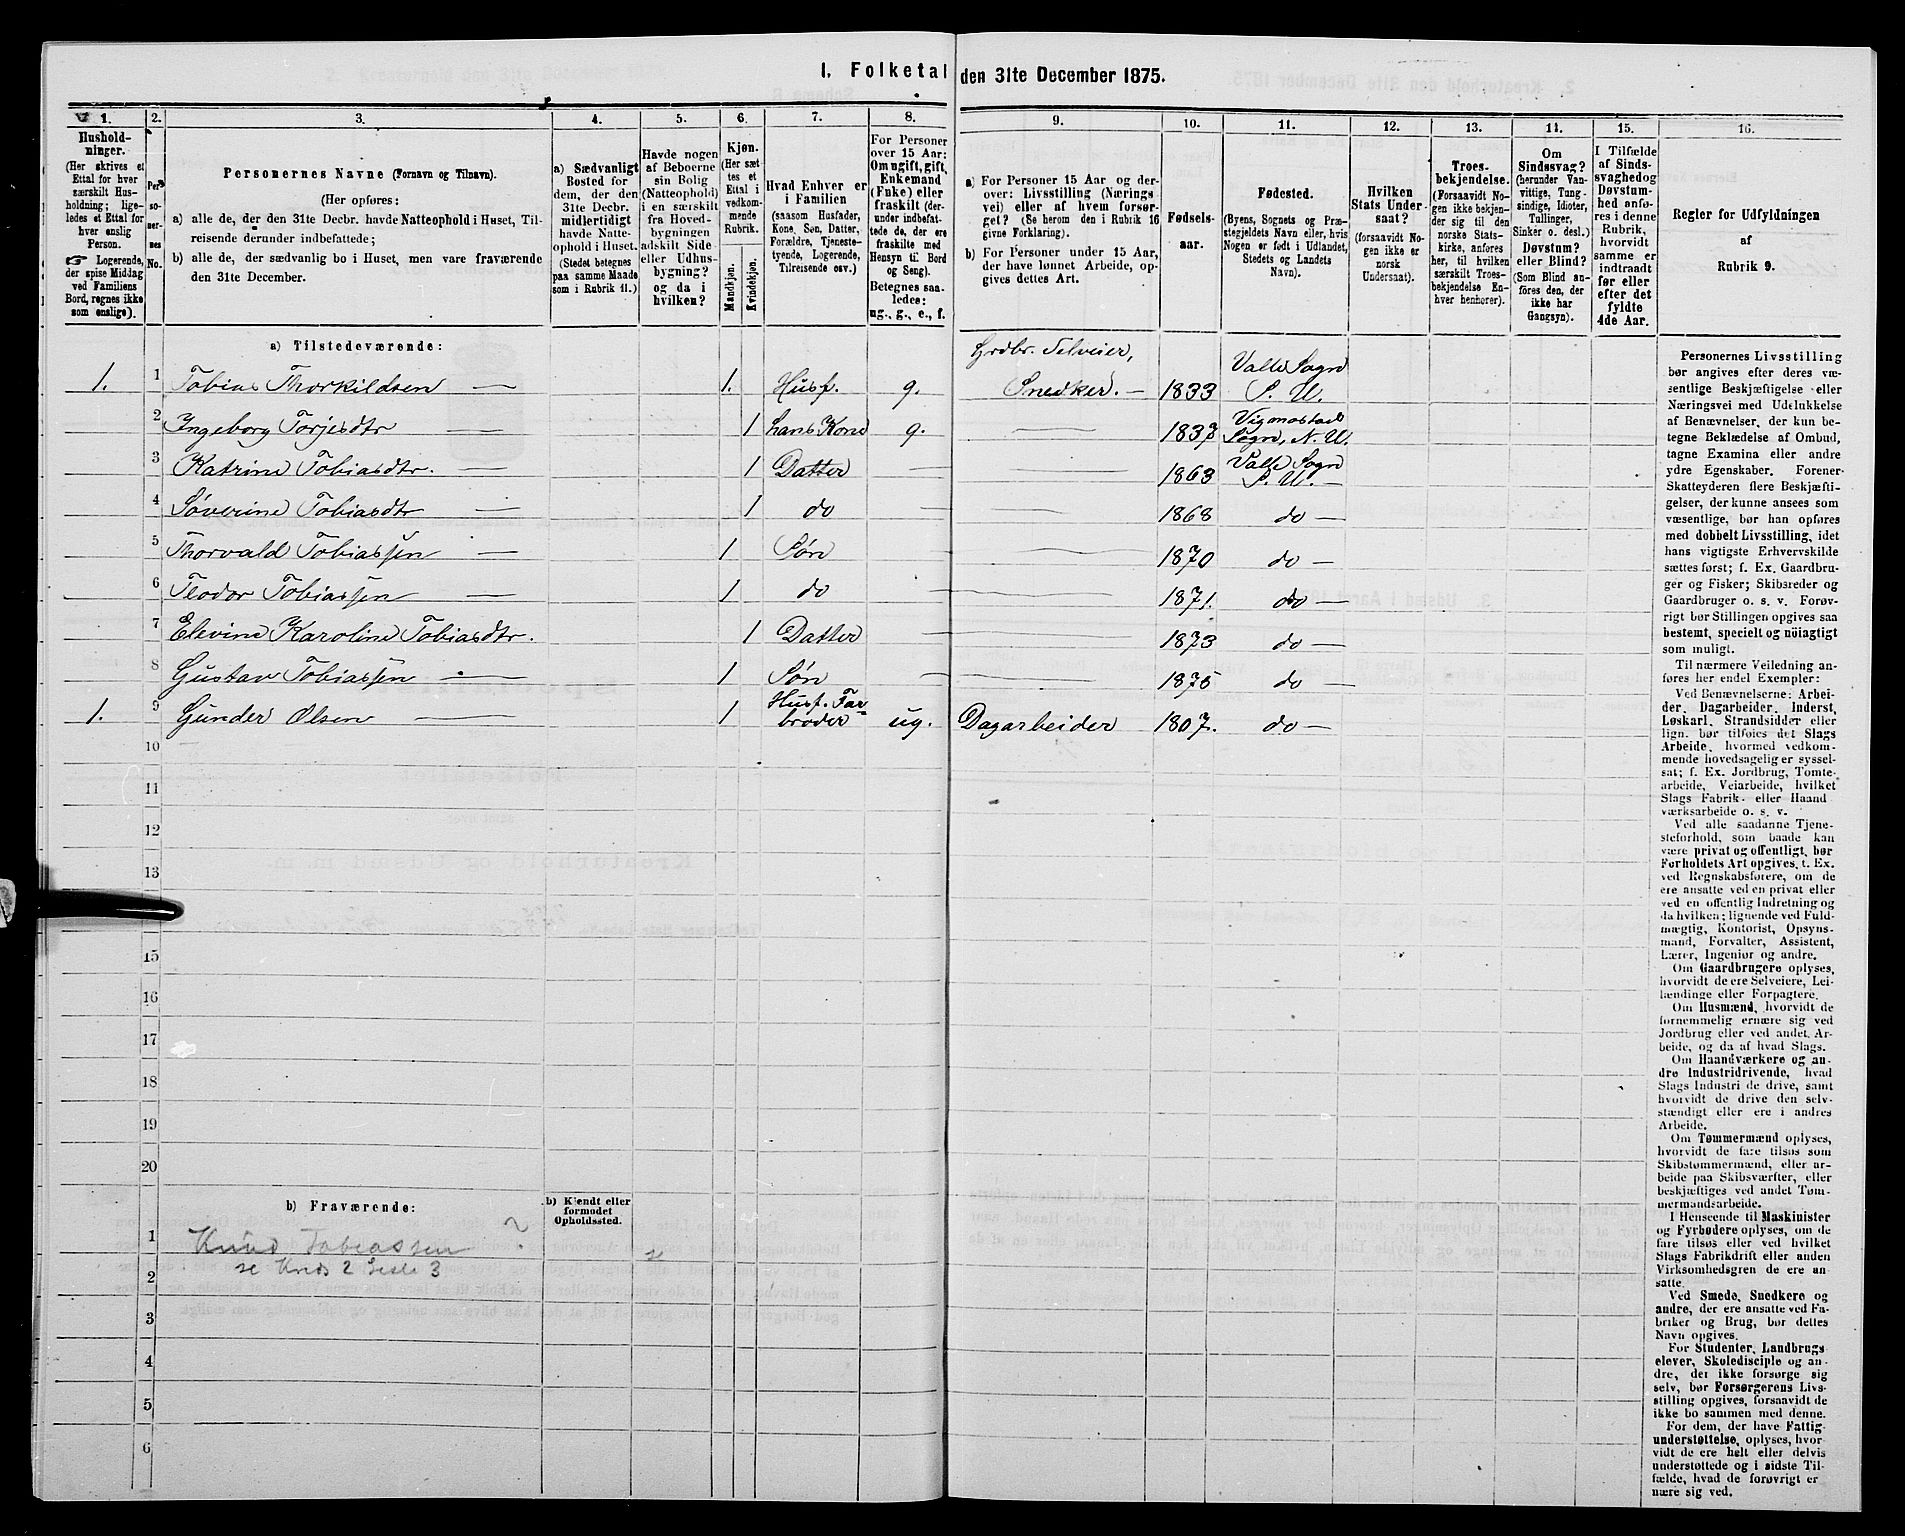 1. Folketal den 31te December 1875.
1. 2. 3. 4. 5. 6. 7. 8. 9. 10. 11. 12. 13. 14. 15. 16.
Hushold-
ninger.
(Her skrives et
Ettal for hver
særskilt Hus-
holdning; lige-
ledes et Ettal for
hver enslig
Person.
☞ Logerende,
der spise Middag
ved Familiens
Bord, regnes ikke
som enslige).
Per-
so-
ner-
nes
No.
Personernes Navne (Fornavn og Tilnavn).
(Her opføres:
a) alle de, der den 31te Decbr. havde Natteophold i Huset, Til-
reisende derunder indbefattede;
b) alle de, der sædvanlig bo i Huset, men vare fraværende
den 31te December.
a) Sædvanligt
Bosted for
dem, der den
31te Decbr.
midlertidigt
havde Natte-
ophold i Huset.
(Stedet betegnes
paa samme Maade
som i Rubrik 11.)
Havde nogen
af Beboerne
sin Bolig
(Natteophold)
i en særskilt
fra Hoved-
bygningen
adskilt Side-
eller Udhus-
bygning?
og da i
hvilken?
Kjøn.
(Her sæt-
tes et
Ettal i
vedkom-
mende
Rubrik.
Mandkjøn.
Kvindekjøn.
Hvad Enhver er
i Familien
(saasom Husfader,
Kone, Søn, Datter,
Forældre, Tjeneste-
tyende, Logerende,
Tilreisende osv.)
For Personer
over 15 Aar:
Om ugift, gift,
Enkemand
(Enke) eller
fraskilt (der-
under indbefat-
tede de, der ere
fraskilte med
Hensyn til Bord
og Seng).
Betegnes saa-
ledes:
ug., g., e., f.
a) For Personer 15 Aar og der-
over: Livsstilling (Nærings-
vei) eller af hvem forsør-
get? (Se herom den i Rubrik 16
givne Forklaring).
b) For Personer under 15 Aar,
der have lønnet Arbeide, op-
gives dettes Art.
Fødsels-
aar.
Fødested.
(Byens, Sognets og Præ-
stegjeldets Navn eller, hvis
Nogen er født i Udlandet,
Stedets og Landets
Navn).
Hvilken
Stats Under-
saat?
(forsaavidt No-
gen ikke er
norsk
Undersaat).
Troes-
bekjendelse.
(Forsaavidt No-
gen ikke bekjen-
der sig til den
norske Stats-
kirke, anføres
her, til hvilken
særskilt Troes-
bekjendelse En-
hver henhører).
Om
Sindssvag?
(herunder Van-
vittige, Tung-
sindige, Idioter,
Tullinger,
Sinker o. desl.)
Døvstum?
eller Blind?
(Som Blind an-
føres den, der
ikke har
Gangsyn).
I Tilfælde
af Sinds-
svaghed og
Døvstum-
hed anfø-
res i denne
Rubrik,
hvorvidt
samme er
indtraadt
før eller
efter det
fyldte
4de Aar.
Regler for Udfyldningen
af
Rubrik 9.
a) Tilstedeværende:
1. 1 Tobias Thorkildsen — 1. Husf. g. Grdbr. Selveier, Snedker. — 1833 Valle Sogn S. U.
2 Ingeborg Torjesdtr — 1 hans Kone g. — 1837 Vigmostad Sogn, N. U.
3 Katrine Tobiasdtr. — 1 Datter — 1863 Valle Sogn S. U. —
4 Søverine Tobiasdtr — 1 do — 1868 do —
5 Thorvald Tobiassen — 1 Søn — 1870 do —
6 Teodor Tobiassen — 1 do — 1871. do —
7 Elevine Karoline Tobiasdtr. 1 Datter — 1873 do —
8 Gustav Tobiassen — 1 Søn — 1875 do —
1. 9 Gunder Olsen — 1 Husf. Far-broder ug. Dagarbeider 1807. do —
10
11
12
13
15
16
17
18
19
20
b) Fraværende:
b) Kjendt eller
formodet
Opholdssted.
1 Knud Tobiassen ?
se Kreds 2 Liste 3
2
3
4
5
6
Personernes Livsstilling
bør angives efter deres væ-
sentlige Beskjæftigelse eller
Næringsvei med Udelukkelse
af Benævnelser, der kun be-
tegne Beklædelse af Ombud,
tagne Examina eller andre
ydre Egenskaber. Forener
Skatteyderen flere Beskjæfti-
gelser, der kunne ansees som
væsentlige, bør han opføres
med dobbelt Livsstilling, idet
hans vigtigste Erhvervskilde
sættes først; f. Ex. Gaardbru-
ger og Fisker; Skibsreder og
Gaardbruger o. s. v. Forøv-
rigt bør Stillingen opgives saa
bestemt, specielt og nøiagtigt
som muligt.
Til nærmere Veiledning an-
føres her endel Exempler:
Ved Benævnelserne: Arbei-
der, Dagarbeider, Inderst,
Løskarl, Strandsidder eller
lign. bør tilføies det Slags
Arbeide, hvormed vedkom-
mende hovedsagelig er syssel-
sat; f. Ex. Jordbrug, Tomte-
arbeide, Veiarbeide, hvilket
Slags Fabrik- eller Haand
værksarbeide o. s. v.
Ved alle saadanne Tjene-
steforhold, som baade kan
være privat og offentligt, bør
Forholdets Art opgives, t. Ex.
ved Regnskabsførere, om de
ere ansatte ved en privat eller
ved en offentlig Indretning og
da hvilken; lignende ved Fuld-
mægtig, Kontorist, Opsyns-
mand, Forvalter, Assistent,
Lærer, Ingeniør og andre.
Om Gaardbrugere oplyses,
hvorvidt de ere Selveiere, Lei-
lændinge eller Forpagtere.
Om Husmænd, hvorvidt de
fornemmelig ernære sig ved
Jordbrug eller ved andet. Ar-
beide, og da af hvad Slags.
Om Haandværkere og an-
dre Industridrivende, hvad
Slags Industri de drive, samt
hvorvidt de drive den selv-
stændigt eller ere i andres
Arbeide.
Om Tømmermænd oplyses,
hvorvidt de fare tilsøs som
Skibstømmermænd, eller ar-
beide paa Skibsværfter, eller
beskjæftiges ved andet Tøm-
mermandsarbeide.
I Henseende til Maskinister
og Fyrbødere oplyses, om de
fare tilsøs eller ved hvilket
Slags Fabrikdrift eller anden
Virksomhedsgren de ere an-
satte.
Ved Smede, Snedkere og
andre, der ere ansatte ved Fa-
briker og Brug, bør dettes
Navn opgives.
For Studenter, Landbrugs-
elever, Skoledisciple og an-
dre, der ikke forsørge sig
selv, bør Forsørgerens Livs-
stilling opgives, forsaavidt de
ikke bo sammen med denne.
For dem, der have Fattig-
understøttelse, oplyses, hvor-
vidt de ere helt eller delvis
understøttede og i sidste Til-
fælde, hvad de forøvrigt er-
nære sig ved.